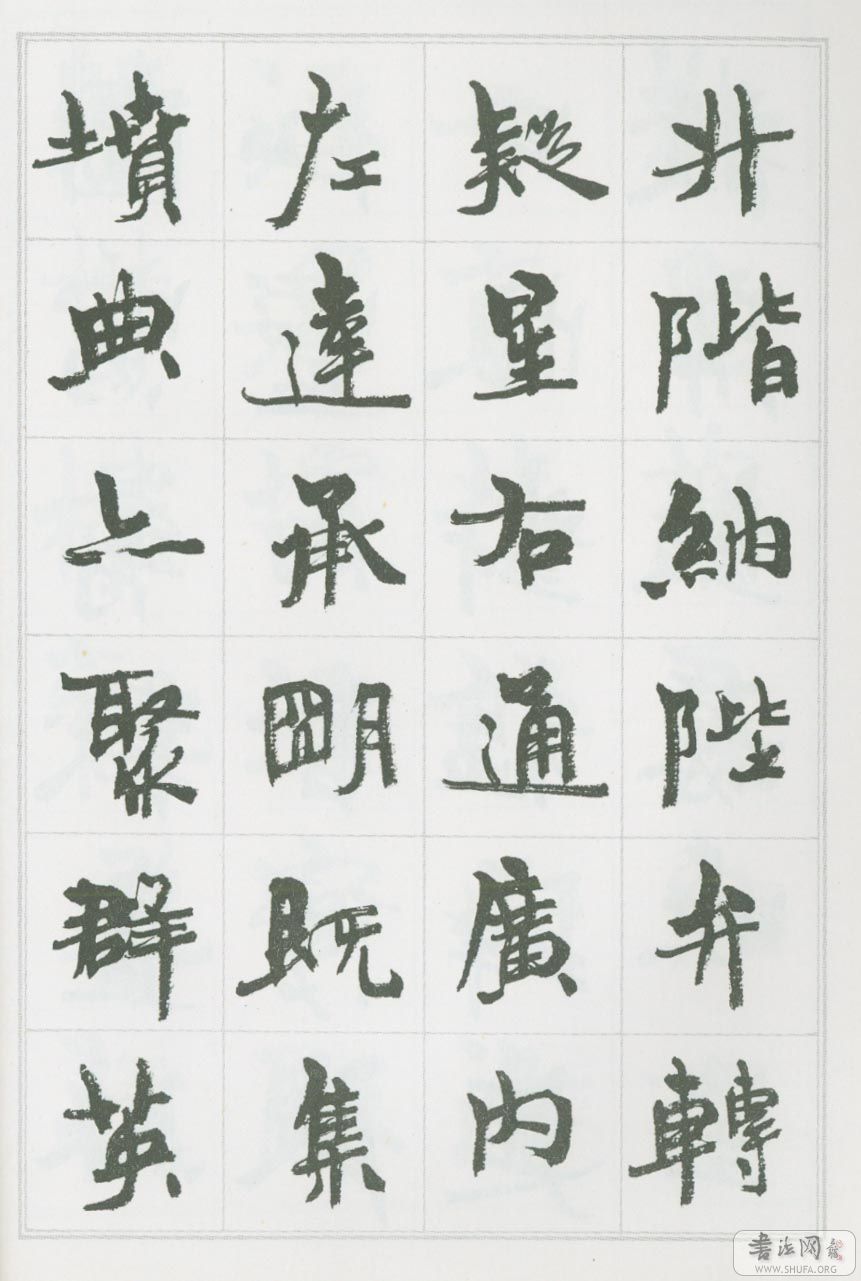 升階納陛弁轉
疑星右通廣內
左達承明既集
墳典亦聚群英
書法网
WWW.SHUFA.ORG